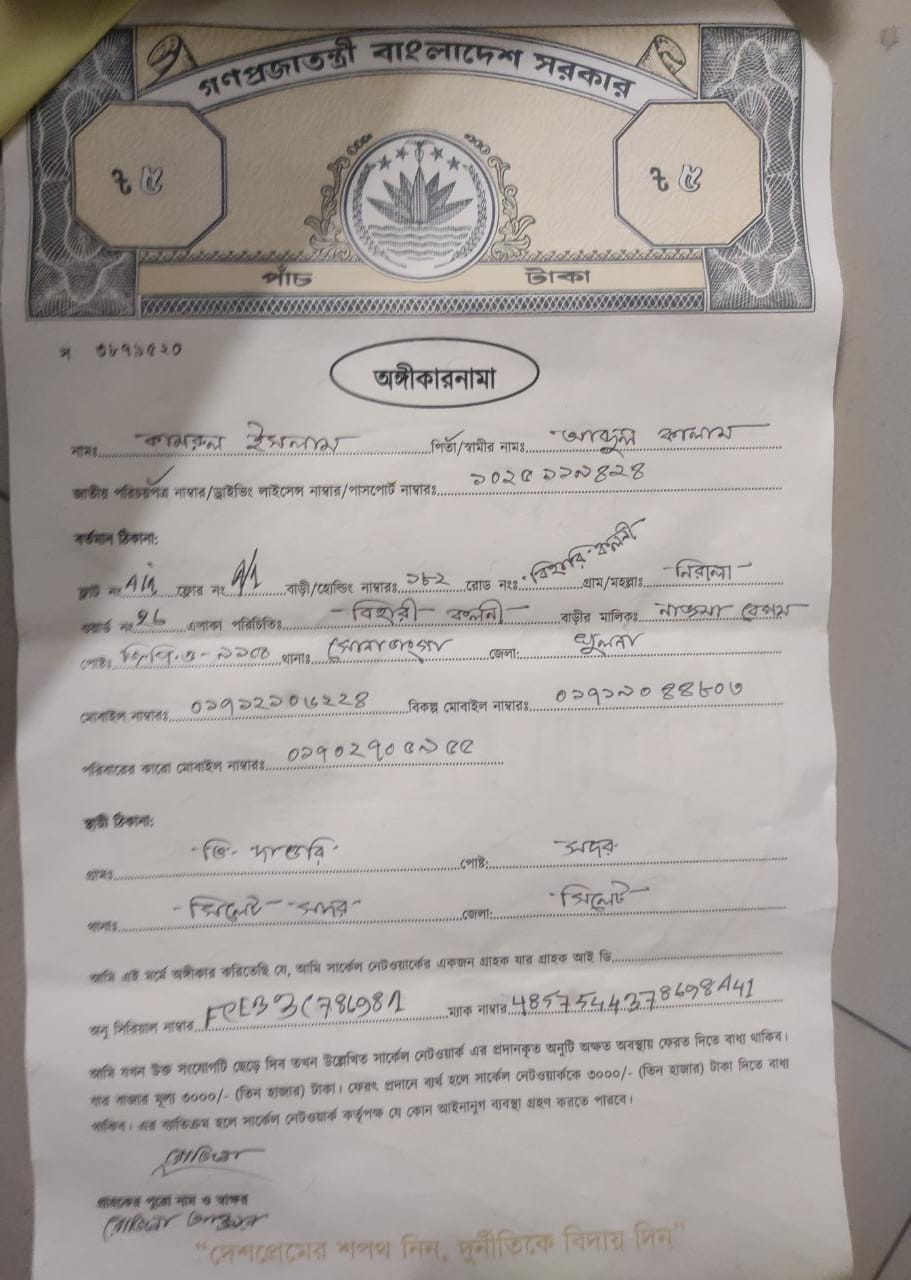 গণপ্রজাতন্ত্রী বাংলাদেশ সরকার
৳ ৫ ৳ ৫
পাঁচ টাকা
অঙ্গীকারনামা
নামঃ কামরুল ইসলাম পিতা/স্বামীর নামঃ আবুল কালাম
জাতীয় পরিচয়পত্র নাম্বার/ড্রাইভিং লাইসেন্স নাম্বার/পাসপোর্ট নাম্বারঃ
বর্তমান ঠিকানা:
ফ্লাট নং A/1 ফ্লোর নং A/1 বাড়ী/হোল্ডিং নাম্বারঃ ১৮২ রোড নংঃ বিহারি কলনী গ্রাম/মহল্লাঃ নিরালা
ওয়ার্ড নং এলাকা পরিচিতিঃ বিহারী কলনী বাড়ীর মালিকঃ নাজমা বেগম
পোষ্টঃ থানাঃ সোনাডাঙ্গা জেলা: খুলনা
মোবাইল নাম্বারঃ বিকল্প মোবাইল নাম্বারঃ
পরিবারের কারো মোবাইল নাম্বারঃ
স্থায়ী ঠিকানা:
গ্রামঃ পোষ্ট: সদর
থানাঃ সিলেট সদর জেলা: সিলেট
আমি এই মর্মে অঙ্গীকার করিতেছি যে, আমি সার্কেল নেটওয়ার্কের একজন গ্রাহক যার গ্রাহক আই ডি
অনু সিরিয়াল নাম্বার ম্যাক নাম্বার 4857544378698A41
আমি যখন উক্ত সংযোগটি ছেড়ে দিব তখন উল্লেখিত সার্কেল নেটওয়ার্ক এর প্রদানকৃত অনুটি অক্ষত অবস্থায় ফেরত দিতে বাধ্য থাকিব।
যার বাজার মূল্য ৩০০০/- (তিন হাজার) টাকা। ফেরৎ প্রদানে ব্যর্থ হলে সার্কেল নেটওয়ার্ককে ৩০০০/- (তিন হাজার) টাকা দিতে বাধ্য
থাকিব। এর ব্যতিক্রম হলে সার্কেল নেটওয়ার্ক কর্তৃপক্ষ যে কোন আইনানুগ ব্যবস্থা গ্রহণ করতে পারবে।
রোজিনা
গ্রাহকের পুরো নাম ও স্বাক্ষর
রোজিনা আক্তার
“দেশপ্রেমের শপথ নিন, দুর্নীতিকে বিদায় দিন”